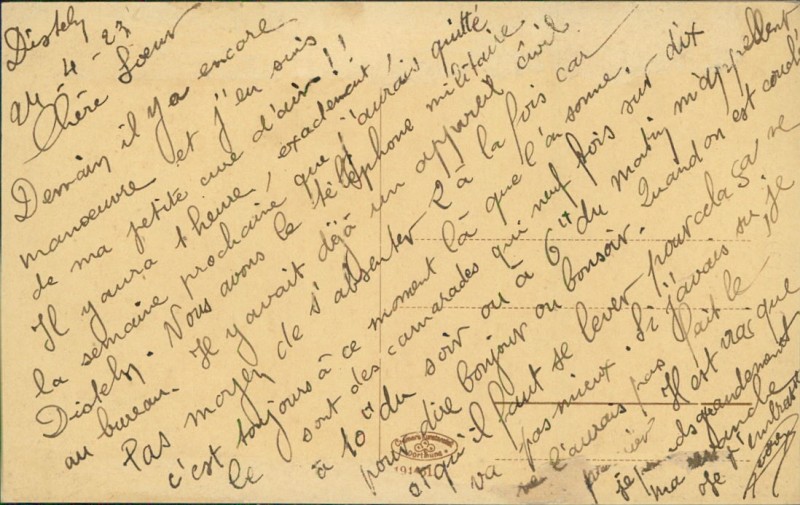 Distely
24-4-27
Chère Soeur
Demain il y a encore
manoeuvre et j'en suis
de ma petite cure d'air!!
Il y aura 1 heure, exactement,
la semaine prochaine que j'aurais quitté
Distely. Nous avons le téléphone militaire
au bureau. Il y avait déjà un appareil civil
Pas moyen de s'absenter 2 à la fois car
c'est toujours à ce moment là que l'on sonne.
Ce sont des camarades qui neuf fois sur dix
à 10h du soir ou à 6h du matin m'appellent
pour dire bonjour ou bonsoir. Quand on est couché
et qu'il faut se lever pour cela ça ne
va pas mieux. Si j'avais su je
ne l'aurais pas fait le
premier Il est vrai que
je prends grandement
ma revanche
Je t'embrasse